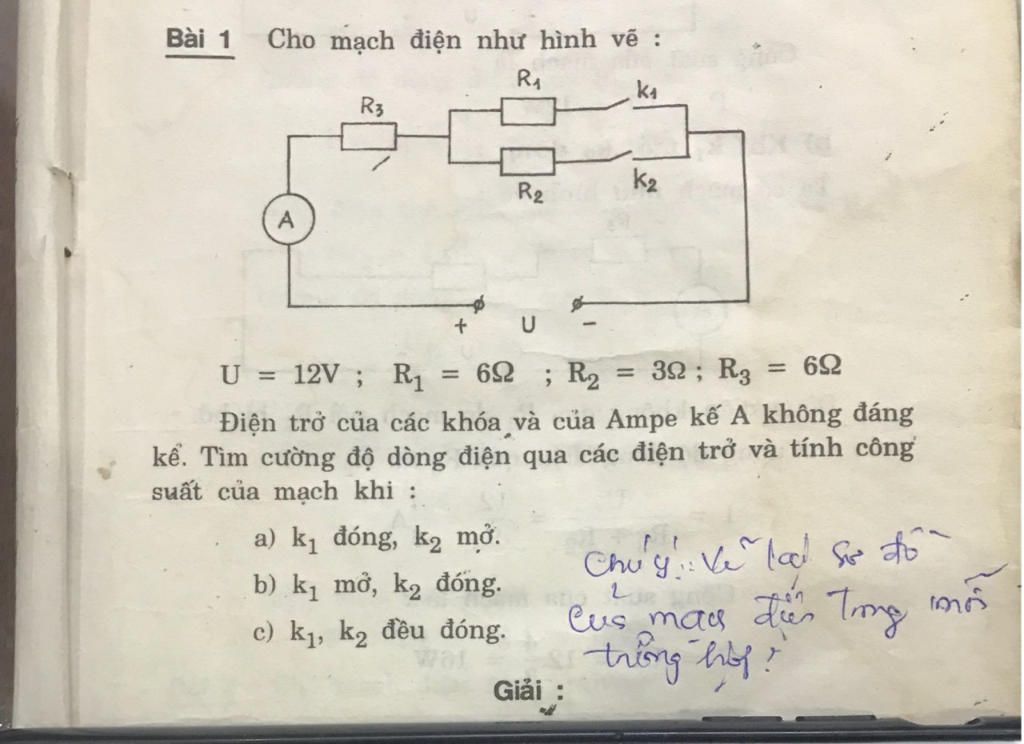 Bài 1 Cho mạch điện như hình vẽ :
R₁ k₁
R₃
R₂ k₂
A
+ U −
U = 12V ; R₁ = 6Ω ; R₂ = 3Ω ; R₃ = 6Ω
Điện trở của các khóa và của Ampe kế A không đáng
kể. Tìm cường độ dòng điện qua các điện trở và tính công
suất của mạch khi :
a) k₁ đóng, k₂ mở.
b) k₁ mở, k₂ đóng.
c) k₁, k₂ đều đóng.
Chú ý: Vẽ lại sơ đồ
của mạch điện trong mỗi
trường hợp!
Giải :